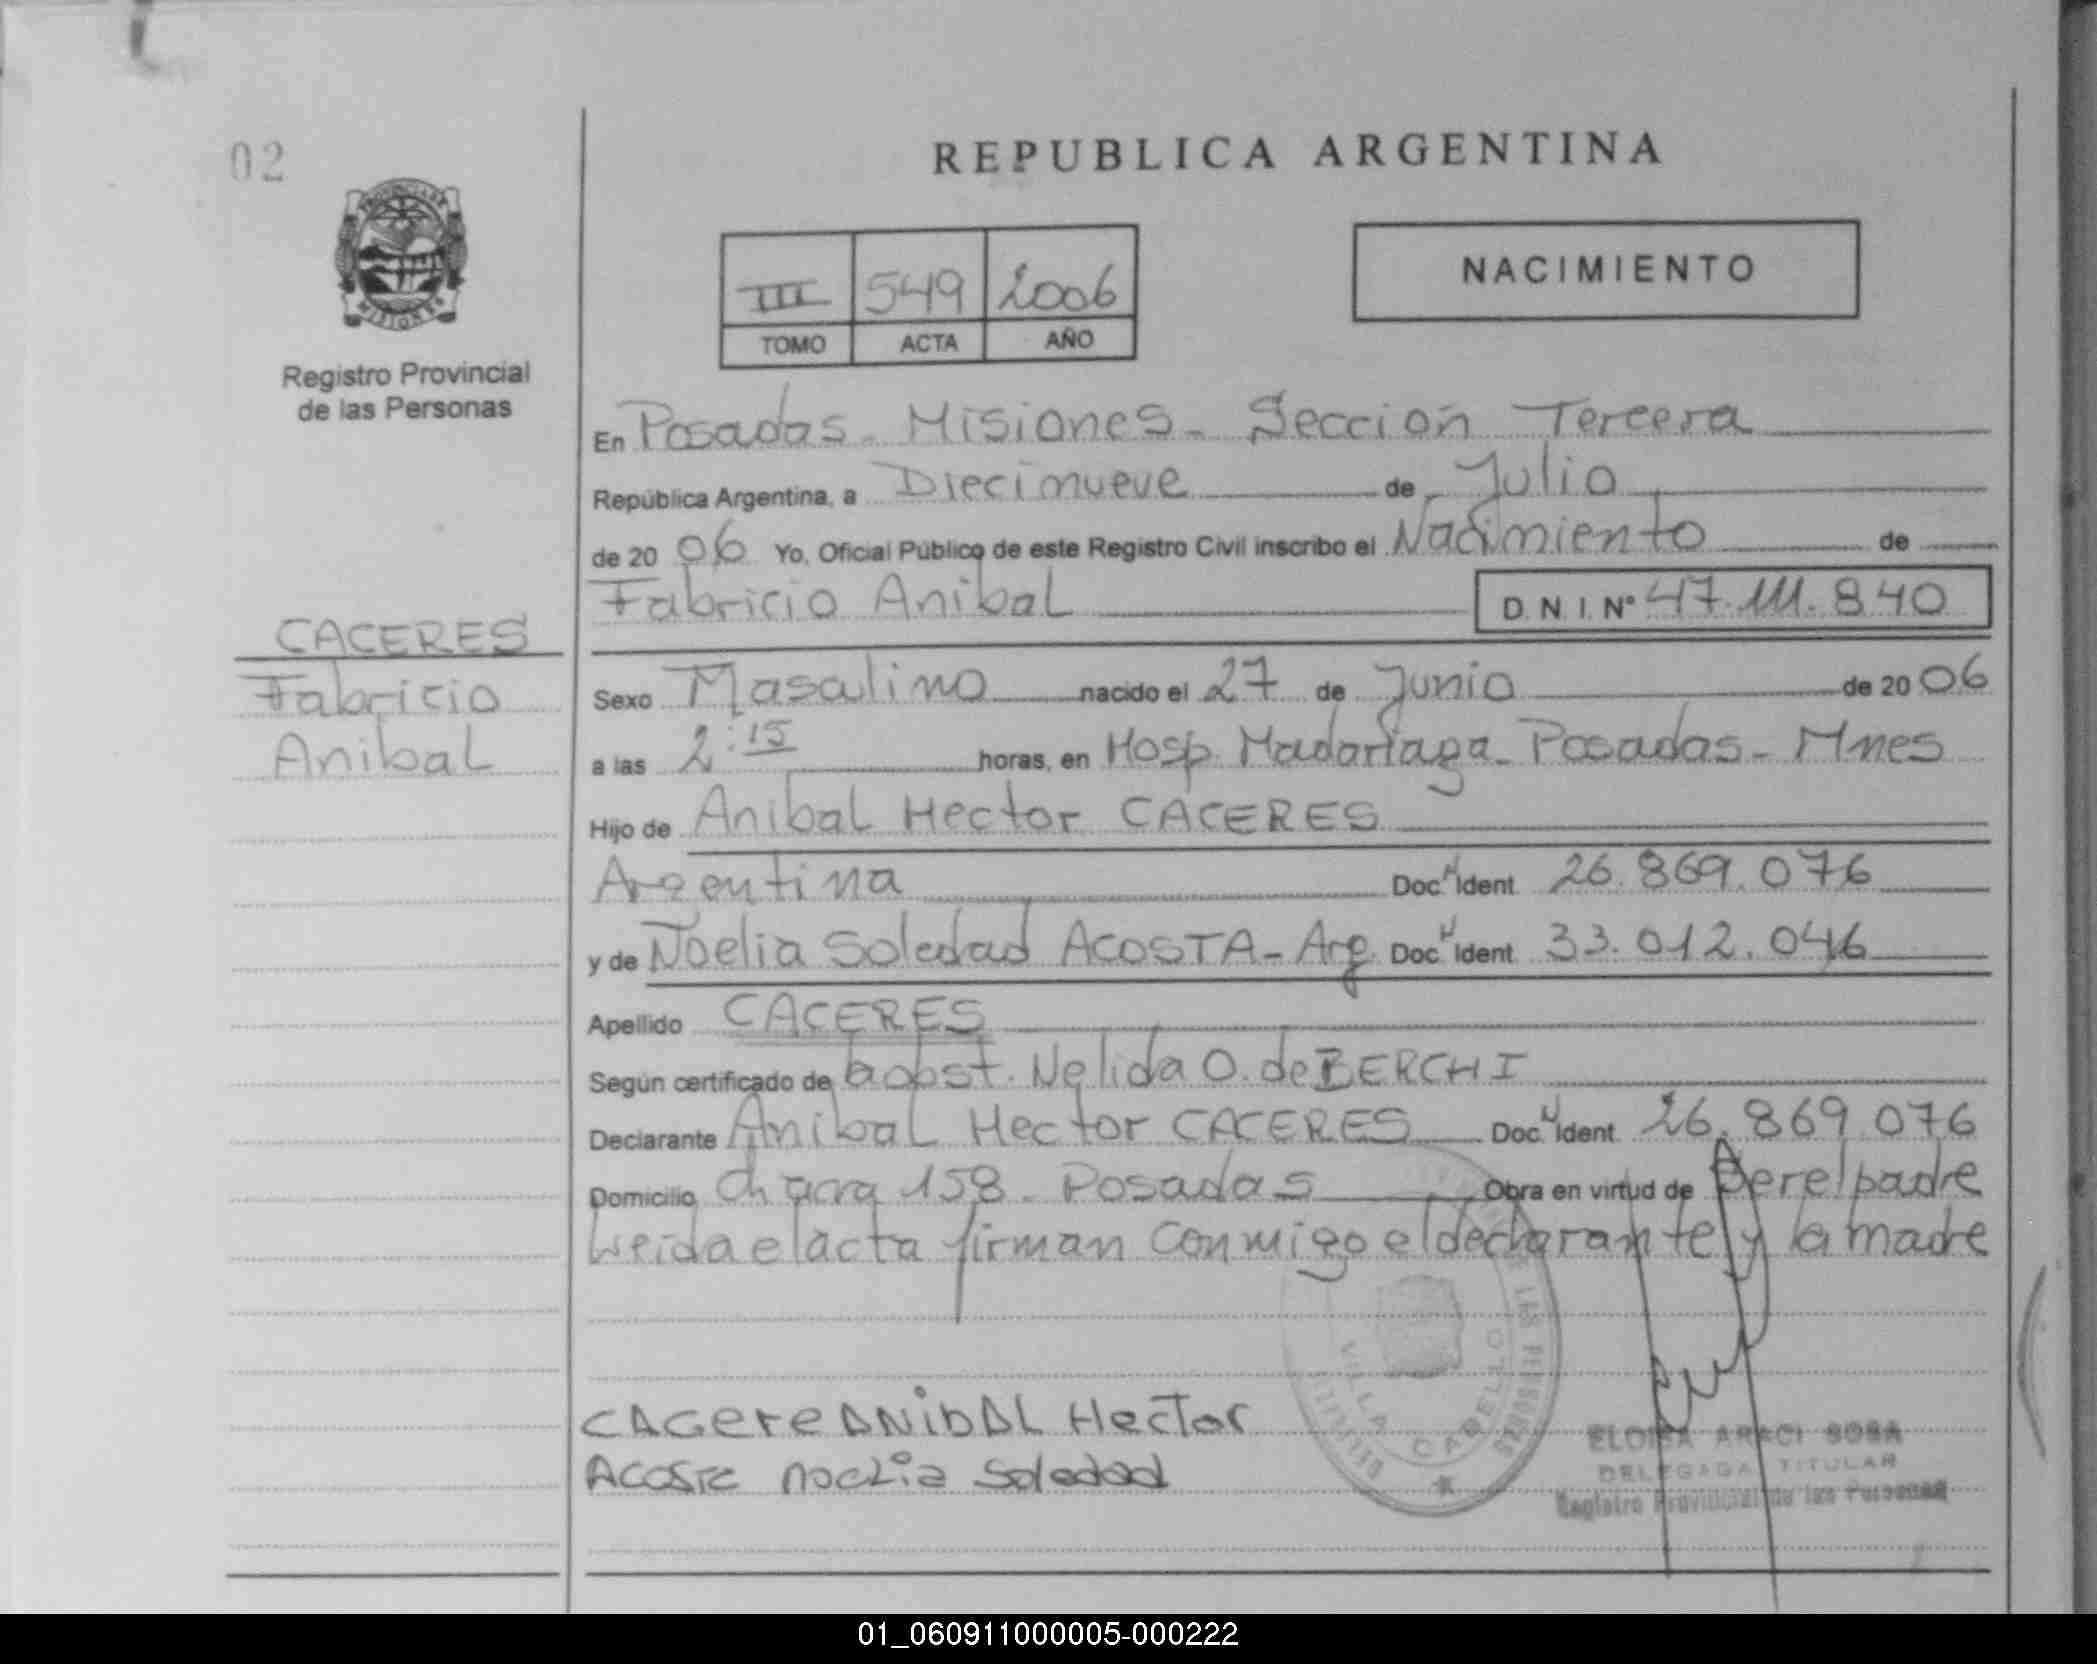 02
REPUBLICA ARGENTINA
PROVINCIA DE
MISIONES
Registro Provincial
de las Personas
III 549 2006
TOMO ACTA AÑO
NACIMIENTO
En Posadas - Misiones - Sección Tercera
República Argentina, a Diecinueve de Julio
de 20 06 Yo, Oficial Público de este Registro Civil inscribo el Nacimiento de
Fabricio Anibal D.N.I. Nº 47.111.840
CACERES
Fabricio
Anibal
Sexo Masculino nacido el 27 de Junio de 20 06
a las 2:15 horas, en Hosp. Madariaga - Posadas - Mnes
Hijo de Anibal Hector CACERES
Argentina Doc. N Ident. 26.869.076
y de Noelia Soledad ACOSTA - Arg. Doc. N Ident. 33.012.046
Apellido CACERES
Según certificado de obst. Nelida O. de BERCHI
Declarante Anibal Hector CACERES Doc. N Ident. 26.869.076
Domicilio Chacra 158 - Posadas Obra en virtud de ser el padre
Leida el acta firman conmigo el declarante y la madre
CACere ANibAL Hector
Acoste noelia Soledad
VILLA CABELLO
DE LAS PERSONAS
ELOISA ARACI SOSA
DELEGADA TITULAR
Registro Provincial de las Personas
01_060911000005-000222